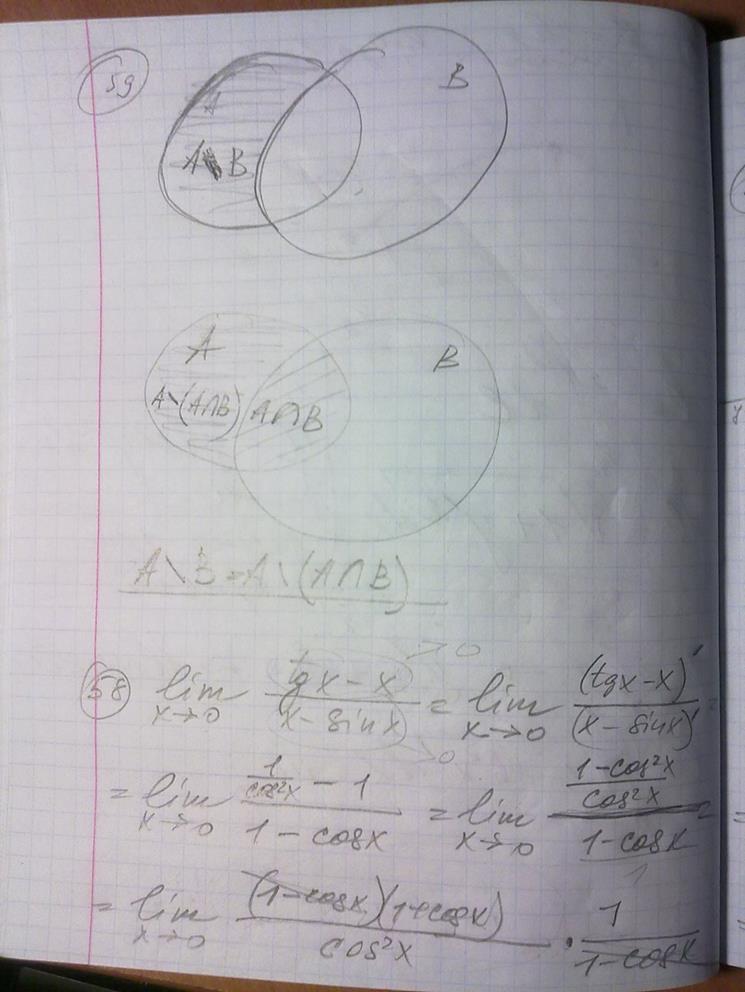 59
A B
A\B
A B
A\(A∩B) A∩B
A\B = A\(A∩B)
58 lim x→0 (tgx - x)/(x - sinx) = lim x→0 (tgx - x)'/(x - sinx)' =
→0
→0
= lim x→0 (1/cos²x - 1)/(1 - cosx) = lim x→0 ((1-cos²x)/cos²x)/(1-cosx) =
1
= lim x→0 (1-cosx)(1+cosx)/cos²x · 1/(1-cosx)